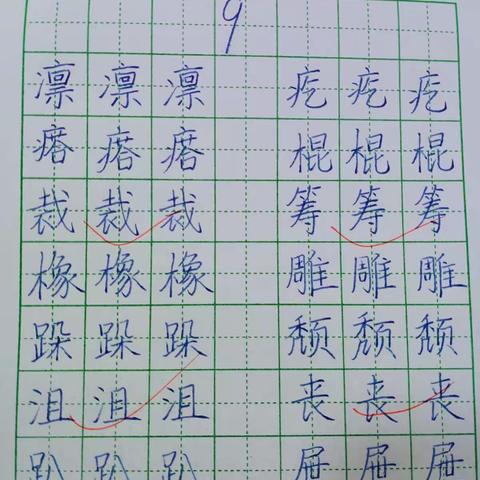 9
凛 凛 凛 疙 疙 疙
瘩 瘩 瘩 棍 棍 棍
裁 裁 裁 筹 筹 筹
橡 橡 橡 雕 雕 雕
跺 跺 跺 颓 颓 颓
沮 沮 沮 丧 丧 丧
趴 趴 趴